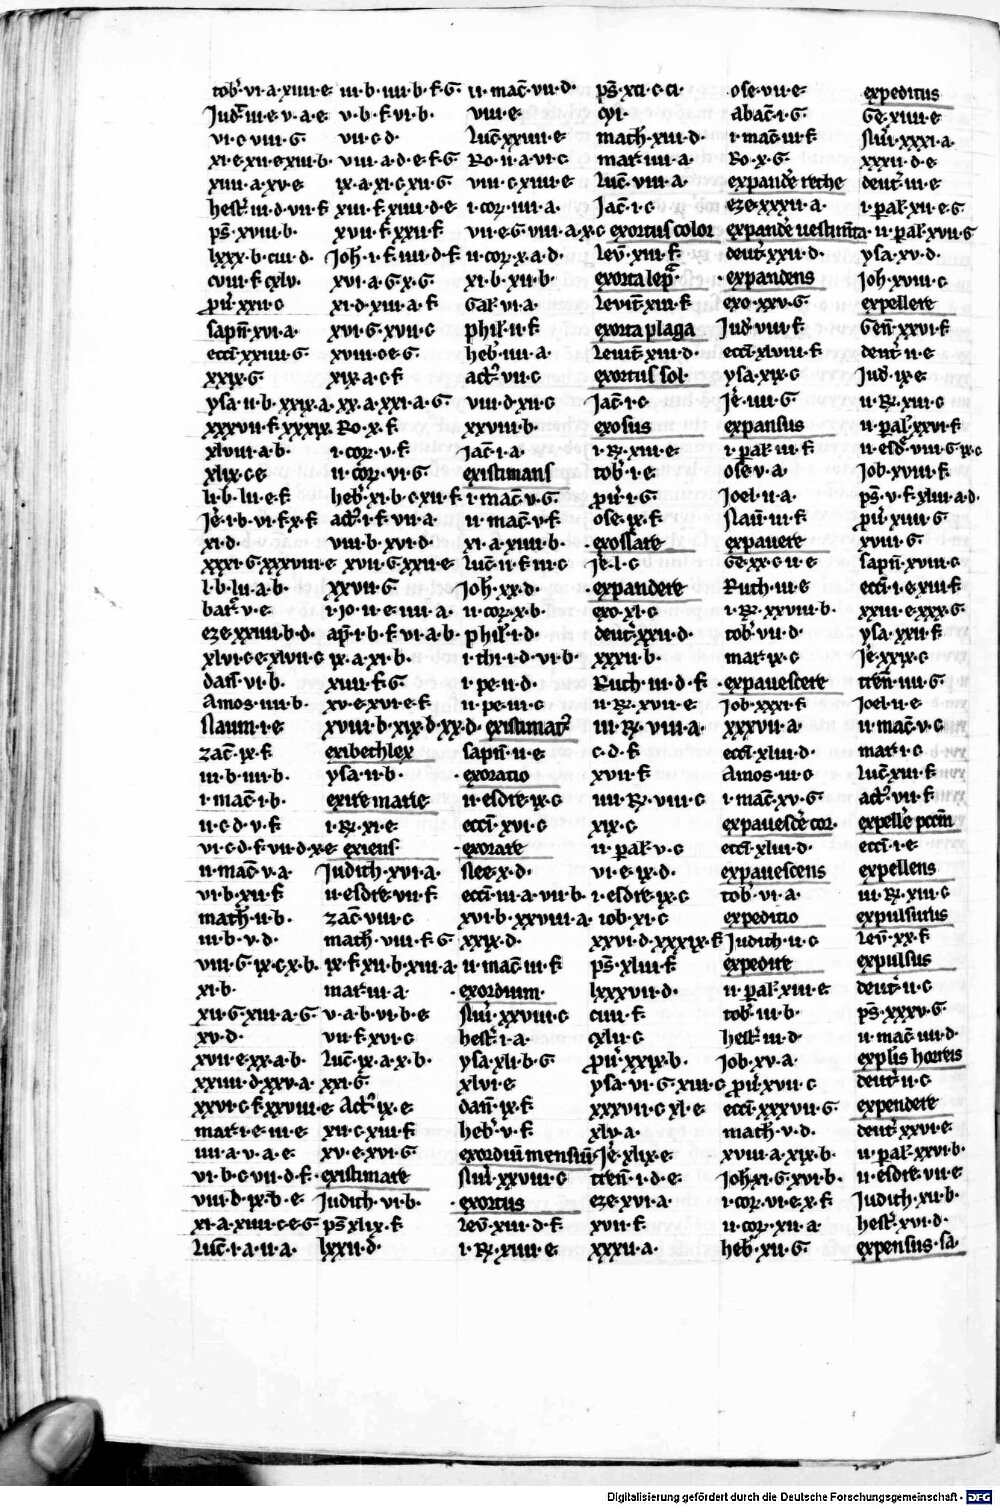 tob͛·vi·a·xiiii·e
Jud͛·iii·e·v·a·e
vi·c·viii·G·
xi·e·xii·e·xiii·b·
xiiii·a·xv·e
hest͛·iii·d·vii·f
ps̄·xviii·b·
lxxx·b·ciii·d·
cviii·f·cxlv·
ꝓu͛·xxii·c
sapn̄·xvi·a·
ecci̅·xxiiii·G·
xxix·G·
ysa·ii·b·xxix·a·
xxxvii·f·xxxix·
xlviii·a·b·
xlix·c·e
li·b·lii·e·f
Je͛·i·b·vi·f·x·f
xi·d·
xxxi·G·xxxviii·e
l·b·lii·a·b·
bar͛·v·e·
eze·xxiiii·b·d·
xlvi·c·e·xlvii·c
dan̄·vi·b·
Amos·iiii·b·
Naum·i·e·
zac̄·ix·f·
iii·b·iiii·b·
i·mac̄·i·b·
ii·c·d·v·f·
vi·c·d·f·vii·d·x·e
ii·mac̄·v·a·
vi·b·xii·f
math͛·ii·b·
iii·b·v·d·
viii·G·ix·c·x·b·
xi·b·
xii·G·xiii·a·G·
xv·d·
xvii·e·xx·a·b·
xxiiii·d·xxv·a·
xxvi·c·f·xxviii·e
mar͛·i·e·iii·e
iiii·a·v·a·e
vi·b·c·vii·d·f·
viii·d·ix·b·e
xi·a·xiiii·c·e·G·
Luc̄·i·a·ii·a·
iii·b·iiii·b·f·G·
v·b·f·vi·b·
vii·c·d·
viii·a·d·e·f·G·
ix·a·xi·c·xii·G·
xiii·f·xiiii·d·e
xvii·f·xxii·f
Joh̄·i·f·iiii·d·f
xvi·a·G·x·G·
xi·d·xiii·a·f
xvi·G·xvii·c
xviii·c·e·G·
xix·a·c·f
xx·a·xxi·a·G·
Ro·x·f·
i·cor͛·v·f·
ii·cor͛·vi·G·
heb͛·xi·b·c·xii·f
act͛·i·f·vii·a·
viii·b·xvi·d·
xvii·G·xxii·e
xxvii·G·
i·jo·ii·e·iiii·a·
ap̄·i·b·f·vi·a·b·
ix·a·xi·b·
xiiii·f·G·
xv·e·xvi·e·f
xviii·b·xix·d·xx·d·
exibechlex
ysa·ii·b·
exire matie
i·R͛·xi·e·
exiens
Judith·xvi·a·
ii·esdre·vii·f·
zac̄·viii·c
math·viii·f·G
ix·f·xii·b·xiii·a
mar͛·iii·a·
v·a·b·vi·b·e
vii·f·xvi·c
Luc̄·ix·a·x·b·
xxi·G·
Act͛·ix·e·
xii·c·xiii·f
xv·e·xvi·G·
existimare
Judith·vi·b·
ps̄·xlix·f·
lxxii·d·
ii·mac̄·vii·d·
viii·e·
Luc̄·xxiiii·e
Ro·ii·a·vi·c
viii·c·xiiii·e
i·cor͛·iiii·a·
vii·e·G·viii·a·x·c
ii·cor͛·x·a·d·
xi·b·xii·b·
Gal͛·vi·a·
phil͛·ii·f
heb͛·iiii·a·
act͛·vii·c
viii·d·xii·c
xxviii·b·
Jac̄·i·a·
existimans
i·mac̄·v·G·
ii·mac̄·v·f·
xi·a·xiiii·b·
Luc̄·ii·f·iii·c·
Joh̄·xx·d·
ii·cor͛·x·b·
phil͛·i·d·
i·thi·i·d·vi·b·
i·pe·ii·d·
ii·pe·iii·c
existimat͛
sapn̄·ii·e
exoratio
ii·esdre·ix·c·
ecci̅·xvi·c
exorare
Nee·x·d·
ecci̅·iii·a·vii·b·
xvi·b·xxviii·a·
xxix·d·
ii·mac̄·iii·f
exordium·
Nu͛·xxviii·c
hest͛·i·a·
ysa·xli·b·G
xlvi·e
dan̄·ix·f·
heb͛·v·f·
exordiū mensiū
Nu͛·xxviii·c
exortus
Lev̄·xiii·d·f·
i·R͛·xiiii·e·
ps̄·xci·c·ci·
cyi·
math·xiii·d·
mar͛·iiii·a·
Luc̄·viii·a·
Jac̄·i·c
exortus color
Lev̄·xiii·f·
exorta lep͛
Levit̄·xiii·f
exorta plaga
Leuit̄·xiii·d·
exortus sol·
Jac̄·i·c
exosus
i·R͛·xiii·e
tob͛·i·e·
ꝓu͛·i·G·
ose·ix·f·
exossare
Je͛·l·c
expandere
exo·xl·c
deut͛·xxii·d·
xxxii·b·
Ruth·iii·d·f·
ii·R͛·xvii·e
iii·R͛·viii·a·
c·d·f·
xvii·f·
iiii·R͛·viii·c
xix·c
ii·ꝑal͛·v·c
vi·e·ix·d·
i·esdre·ix·c
iob·xi·c
xxvi·d·xxxix·f
ps̄·xliii·f·
lxxxvii·d·
ciiii·f·
cxlii·c
ꝓu͛·xxix·b·
ysa·vi·G·xiii·c
xxxvii·c·xl·e
xlv·a·
Je͛·xlix·e
tren̄·i·d·e·
eze·xvi·a·
xvii·f·
xxxii·a·
ose·vii·e·
abac̄·i·G·
i·mac̄·iii·f·
Ro·x·G·
expande͛ reche
eze·xxxii·a·
expande͛ uestimt̄a
deut͛·xxii·d·
expandens
exo·xxv·G·
Jud͛·viii·f
ecci̅·xlviii·f·
ysa·xix·c
Je͛·iiii·G
expansus
i·ꝑal͛·iii·f·
ose·v·a·
Joel·ii·a·
Nau̅·iii·f·
expauere
Ge·xx·c·ii·e
Ruth·iii·e
i·R͛·xxviii·b·
tob͛·vii·d·
mar͛·ix·c
expauescere
Job·xxxi·f
xxxvii·a·
ecci̅·xliii·d·
Amos·iii·c
i·mac̄·xv·G
expauesce͛ cor·
ecci̅·xliii·d·
expauescens
tob͛·vi·a·
expeditio
Judith·ii·c
expedire
ii·ꝑal͛·xiii·e
tob͛·iii·b·
hest͛·iii·d·
Job·xv·a·
ꝓu͛·xvii·c
ecci̅·xxxvii·G·
math·v·d·
xviii·a·xix·b·
Joh·xi·G·xvi·b·
i·cor͛·vi·e·x·f·
ii·cor͛·xii·a·
heb͛·xii·G·
expeditus
Ge·xiiii·e
Nu͛·xxxi·a·
xxxii·d·e
deut͛·iii·e
i·ꝑal͛·xii·e·G·
ii·ꝑal͛·xvii·G
ysa·xv·d·
Joh·xviii·c
expellere
Gen̄·xxvi·f
deut͛·ii·e
Jud͛·ix·e·
ii·R͛·xiii·c
ii·ꝑal͛·xxvi·f
ii·esd͛·viii·G·ix·c
Job·xviii·f
ps̄·v·f·xliii·a·d·
ꝓu͛·xiiii·G
xviii·G·
sapn̄·xviii·c
ecci̅·i·e·xiii·f
xxiii·e·xxx·G·
ysa·xxii·f
Je͛·xxix·c
tren̄·iiii·G·
Joel·ii·e·
ii·mac̄·v·c
mar͛·i·c
Luc̄·xiii·f
act͛·vii·f
expelle͛ pccm̄
ecci̅·i·e
expellens
iii·R͛·xiii·c
expulsurus
Lev̄·xx·f
expulsus
deut͛·ii·c
ps̄·xxxv·G·
ii·mac̄·iiii·d·
explis horreis
deut͛·ii·c
expendere
deut͛·xxvi·e
ii·ꝑal͛·xxvi·b·
ii·esdre·vii·e
Judith·xii·b·
hest͛·xvi·d·
expensus·sa·
Digitalisierung gefördert durch die Deutsche Forschungsgemeinschaft - DFG